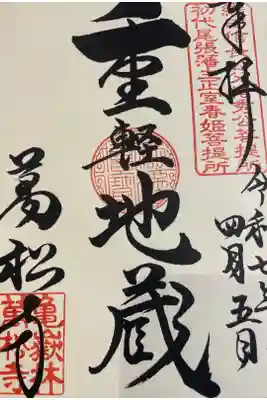 奉拝
令和七年
四月五日
初代尾張藩主正室春姫菩提所
重軽地蔵
萬松寺
亀嶽林
萬松寺